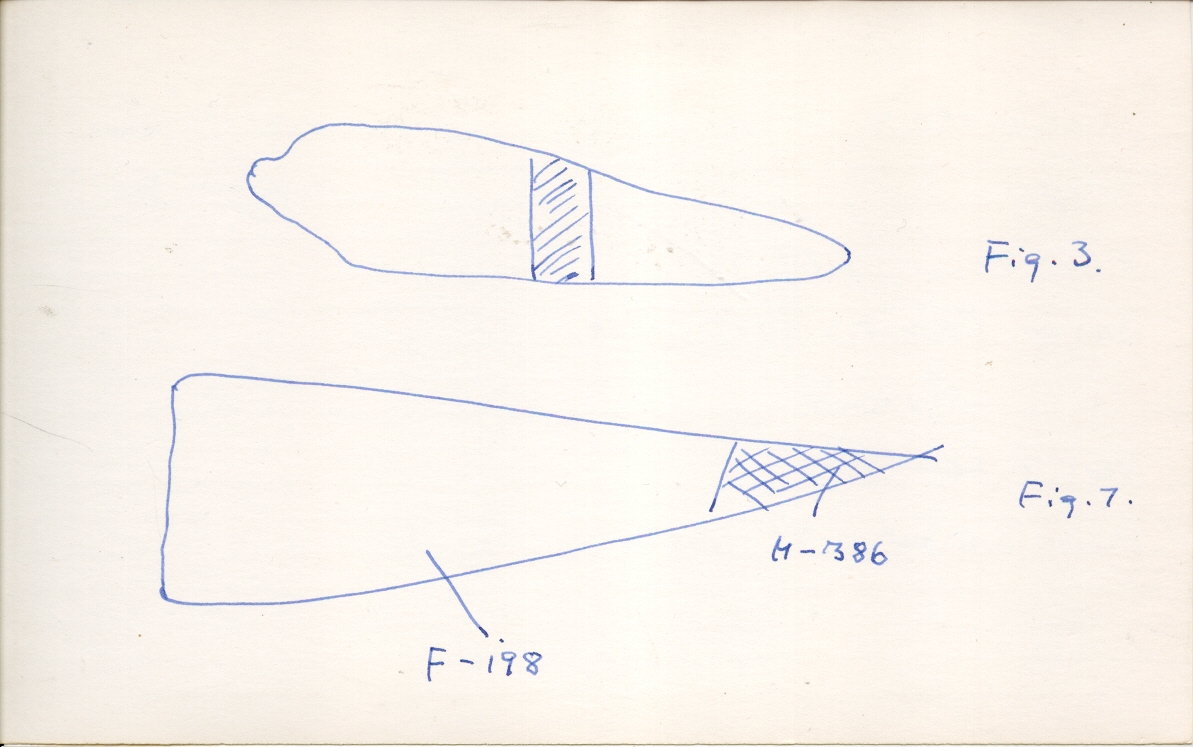 Fig. 3.
Fig. 7.
H-386
F-198